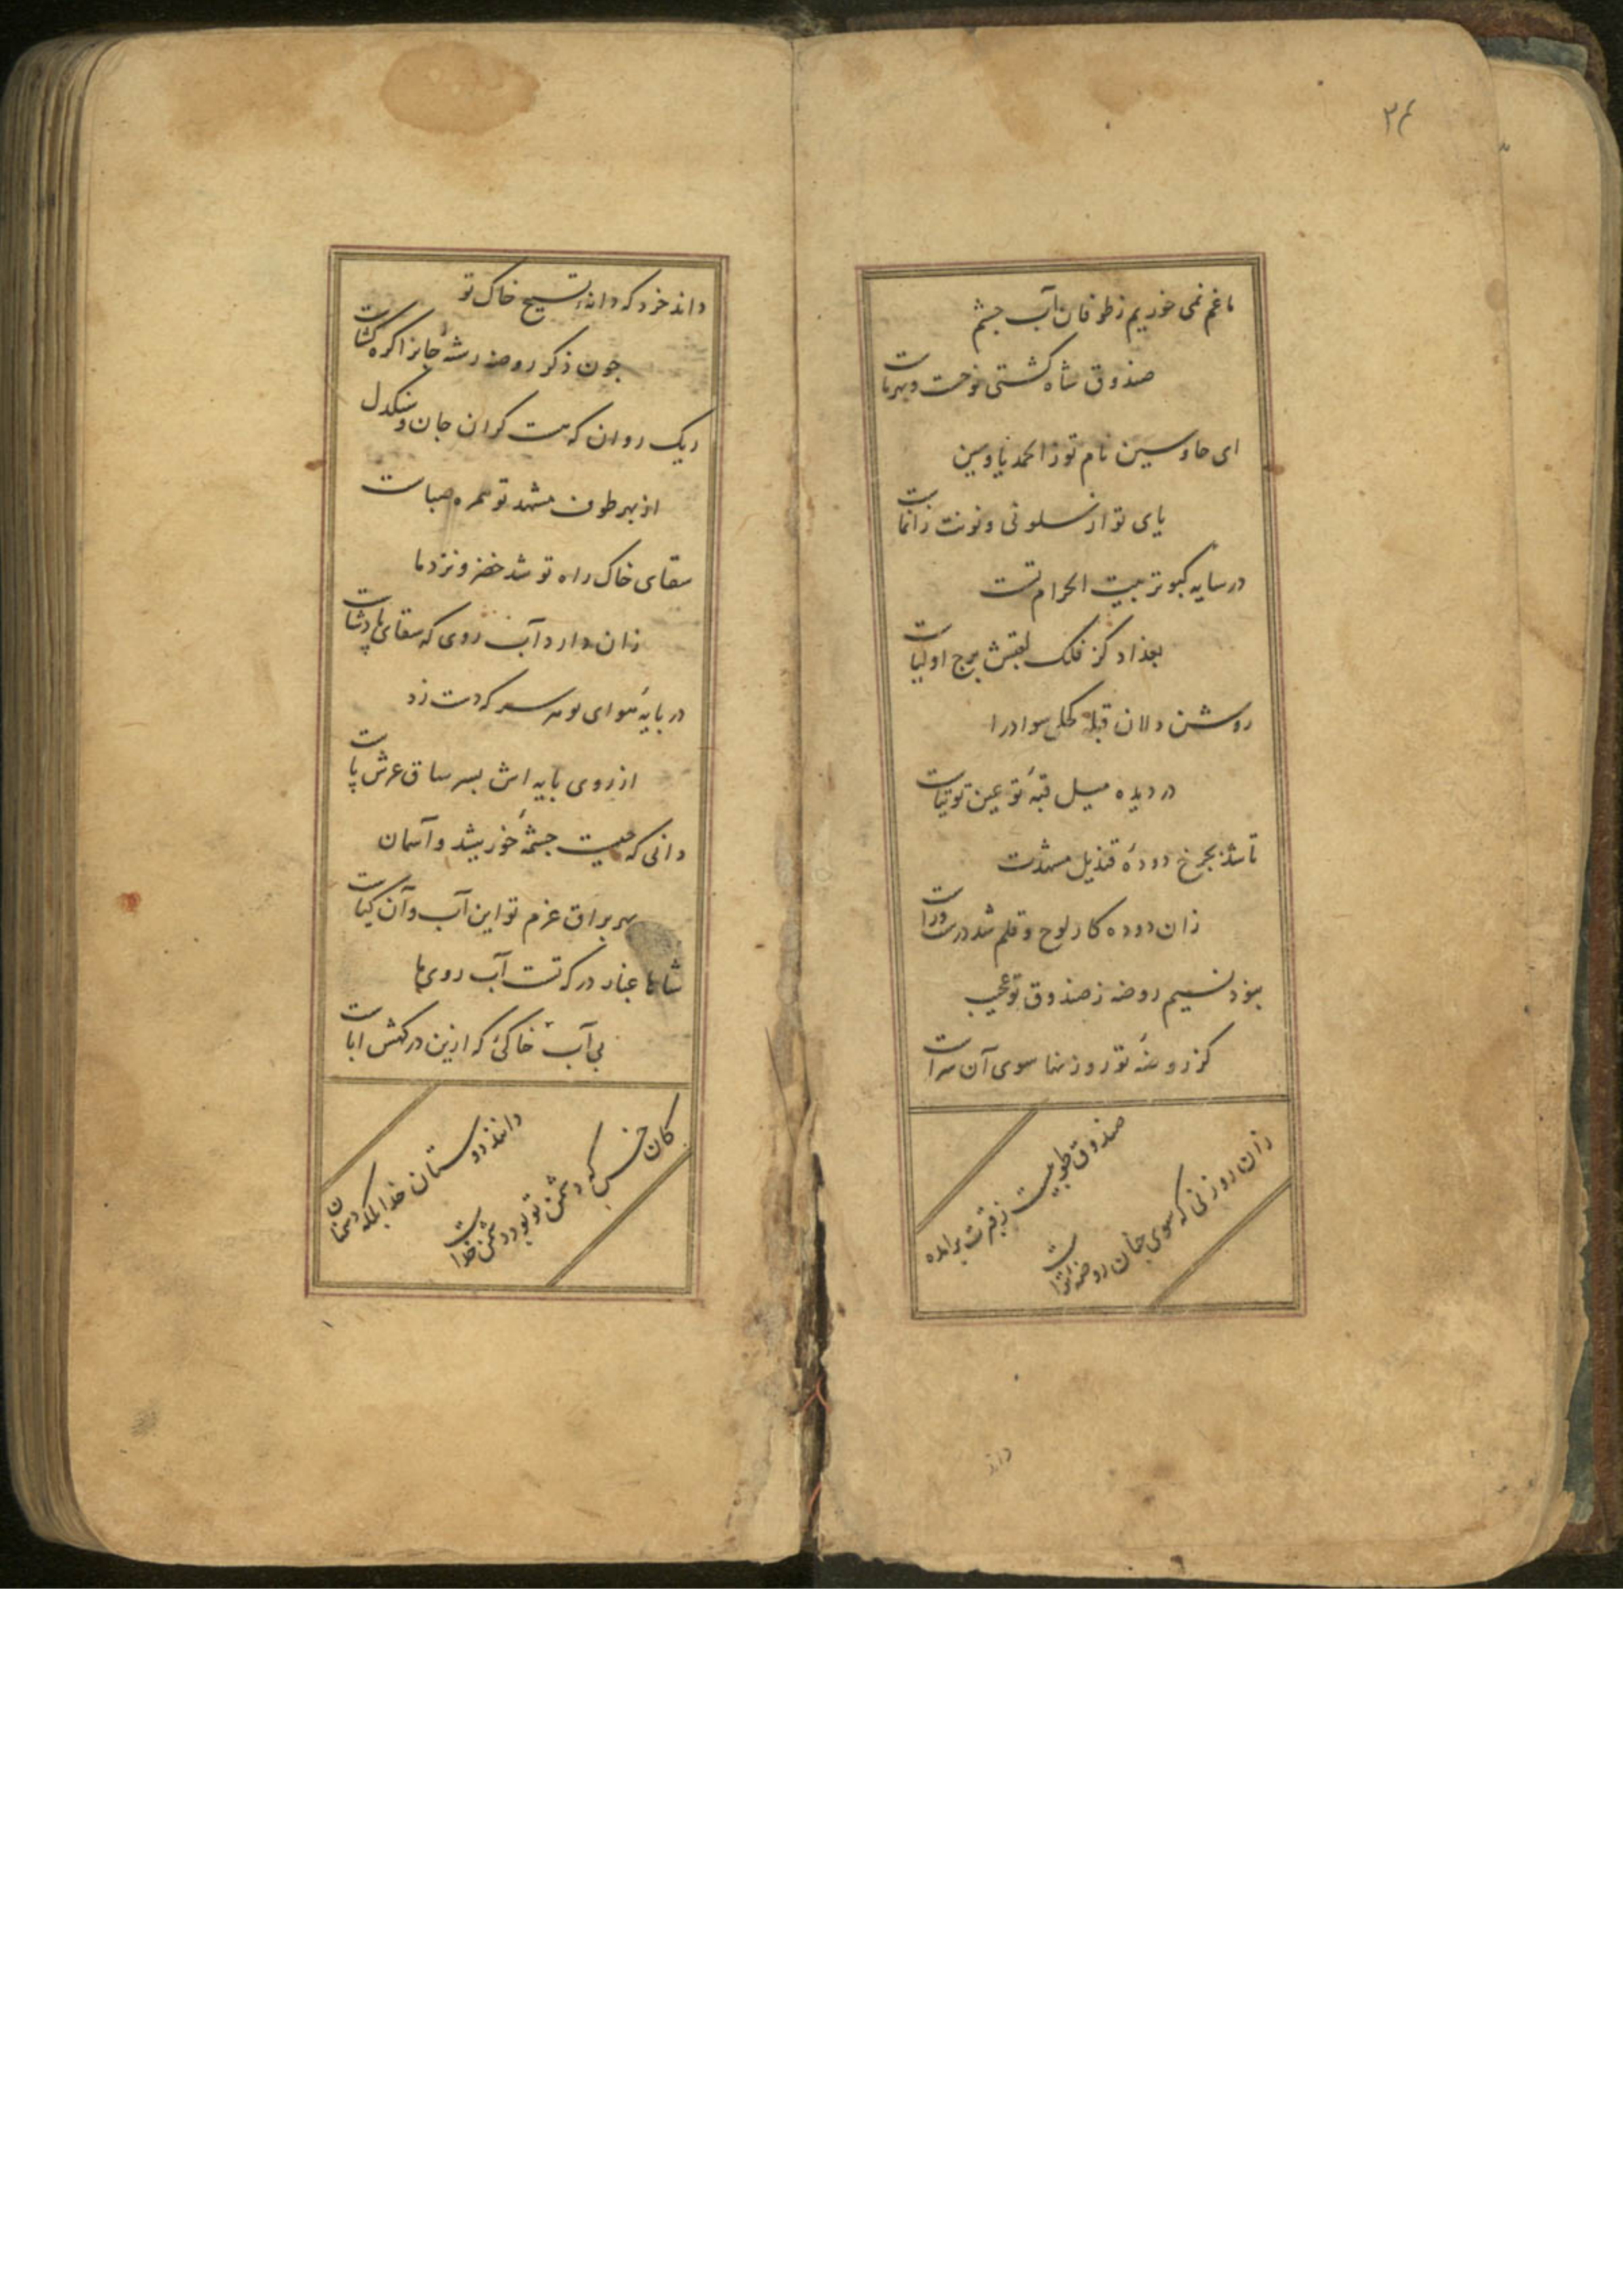 ۲۴
ما غم نمی خوریم ز طوفان آب چشم
صندوق شاه کشتی نوحست و بهر ماست
ای حا و سین نام تو ز الحمد یا و سین
یای تو از سلونی و نونت ز انماست
در سایه کبوتر بیت الحرام تست
بغداد کز فلک لقبش برج اولیاست
روشن دلان قبله کحلی سواد را
در دیده میل قبهٔ تو عین توتیاست
تا شد بچرخ دودهٔ قندیل مشهدت
زان دوده کار لوح و قلم شد درست و راست
نبود نسیم روضه ز صندوق تو عجب
کز روضهٔ تو روزنها سوی آن سراست
صندوق طوبیست ز قبرت برامده
زان روزنی که سوی جنان روضهٔ تراست
داند
داند خرد که دانهٔ تسبیح خاک تو
چون ذکر روضه رشتهٔ جانرا گره گشاست
ریک روان که هست گران جان و سنگدل
از بهر طوف مشهد تو همره صباست
سقای خاک راه تو شد خضر و نزد ما
زان دارد آب روی که سقای پادشاست
در پایهٔ هوای تو هر سر که دست زد
از روی پایه اش بسر ساق عرش پاست
دانی که چیست چشمهٔ خورشید و آسمان
بهر براق عزم تو این آب و آن گیاست
شاها غبار درگه تست آب روی ما
بی آب خاکئ که ازین درگهش اباست
دانند دوستان خدا بلکه دشمنان
کان خس که دشمن تو بود دشمن خداست